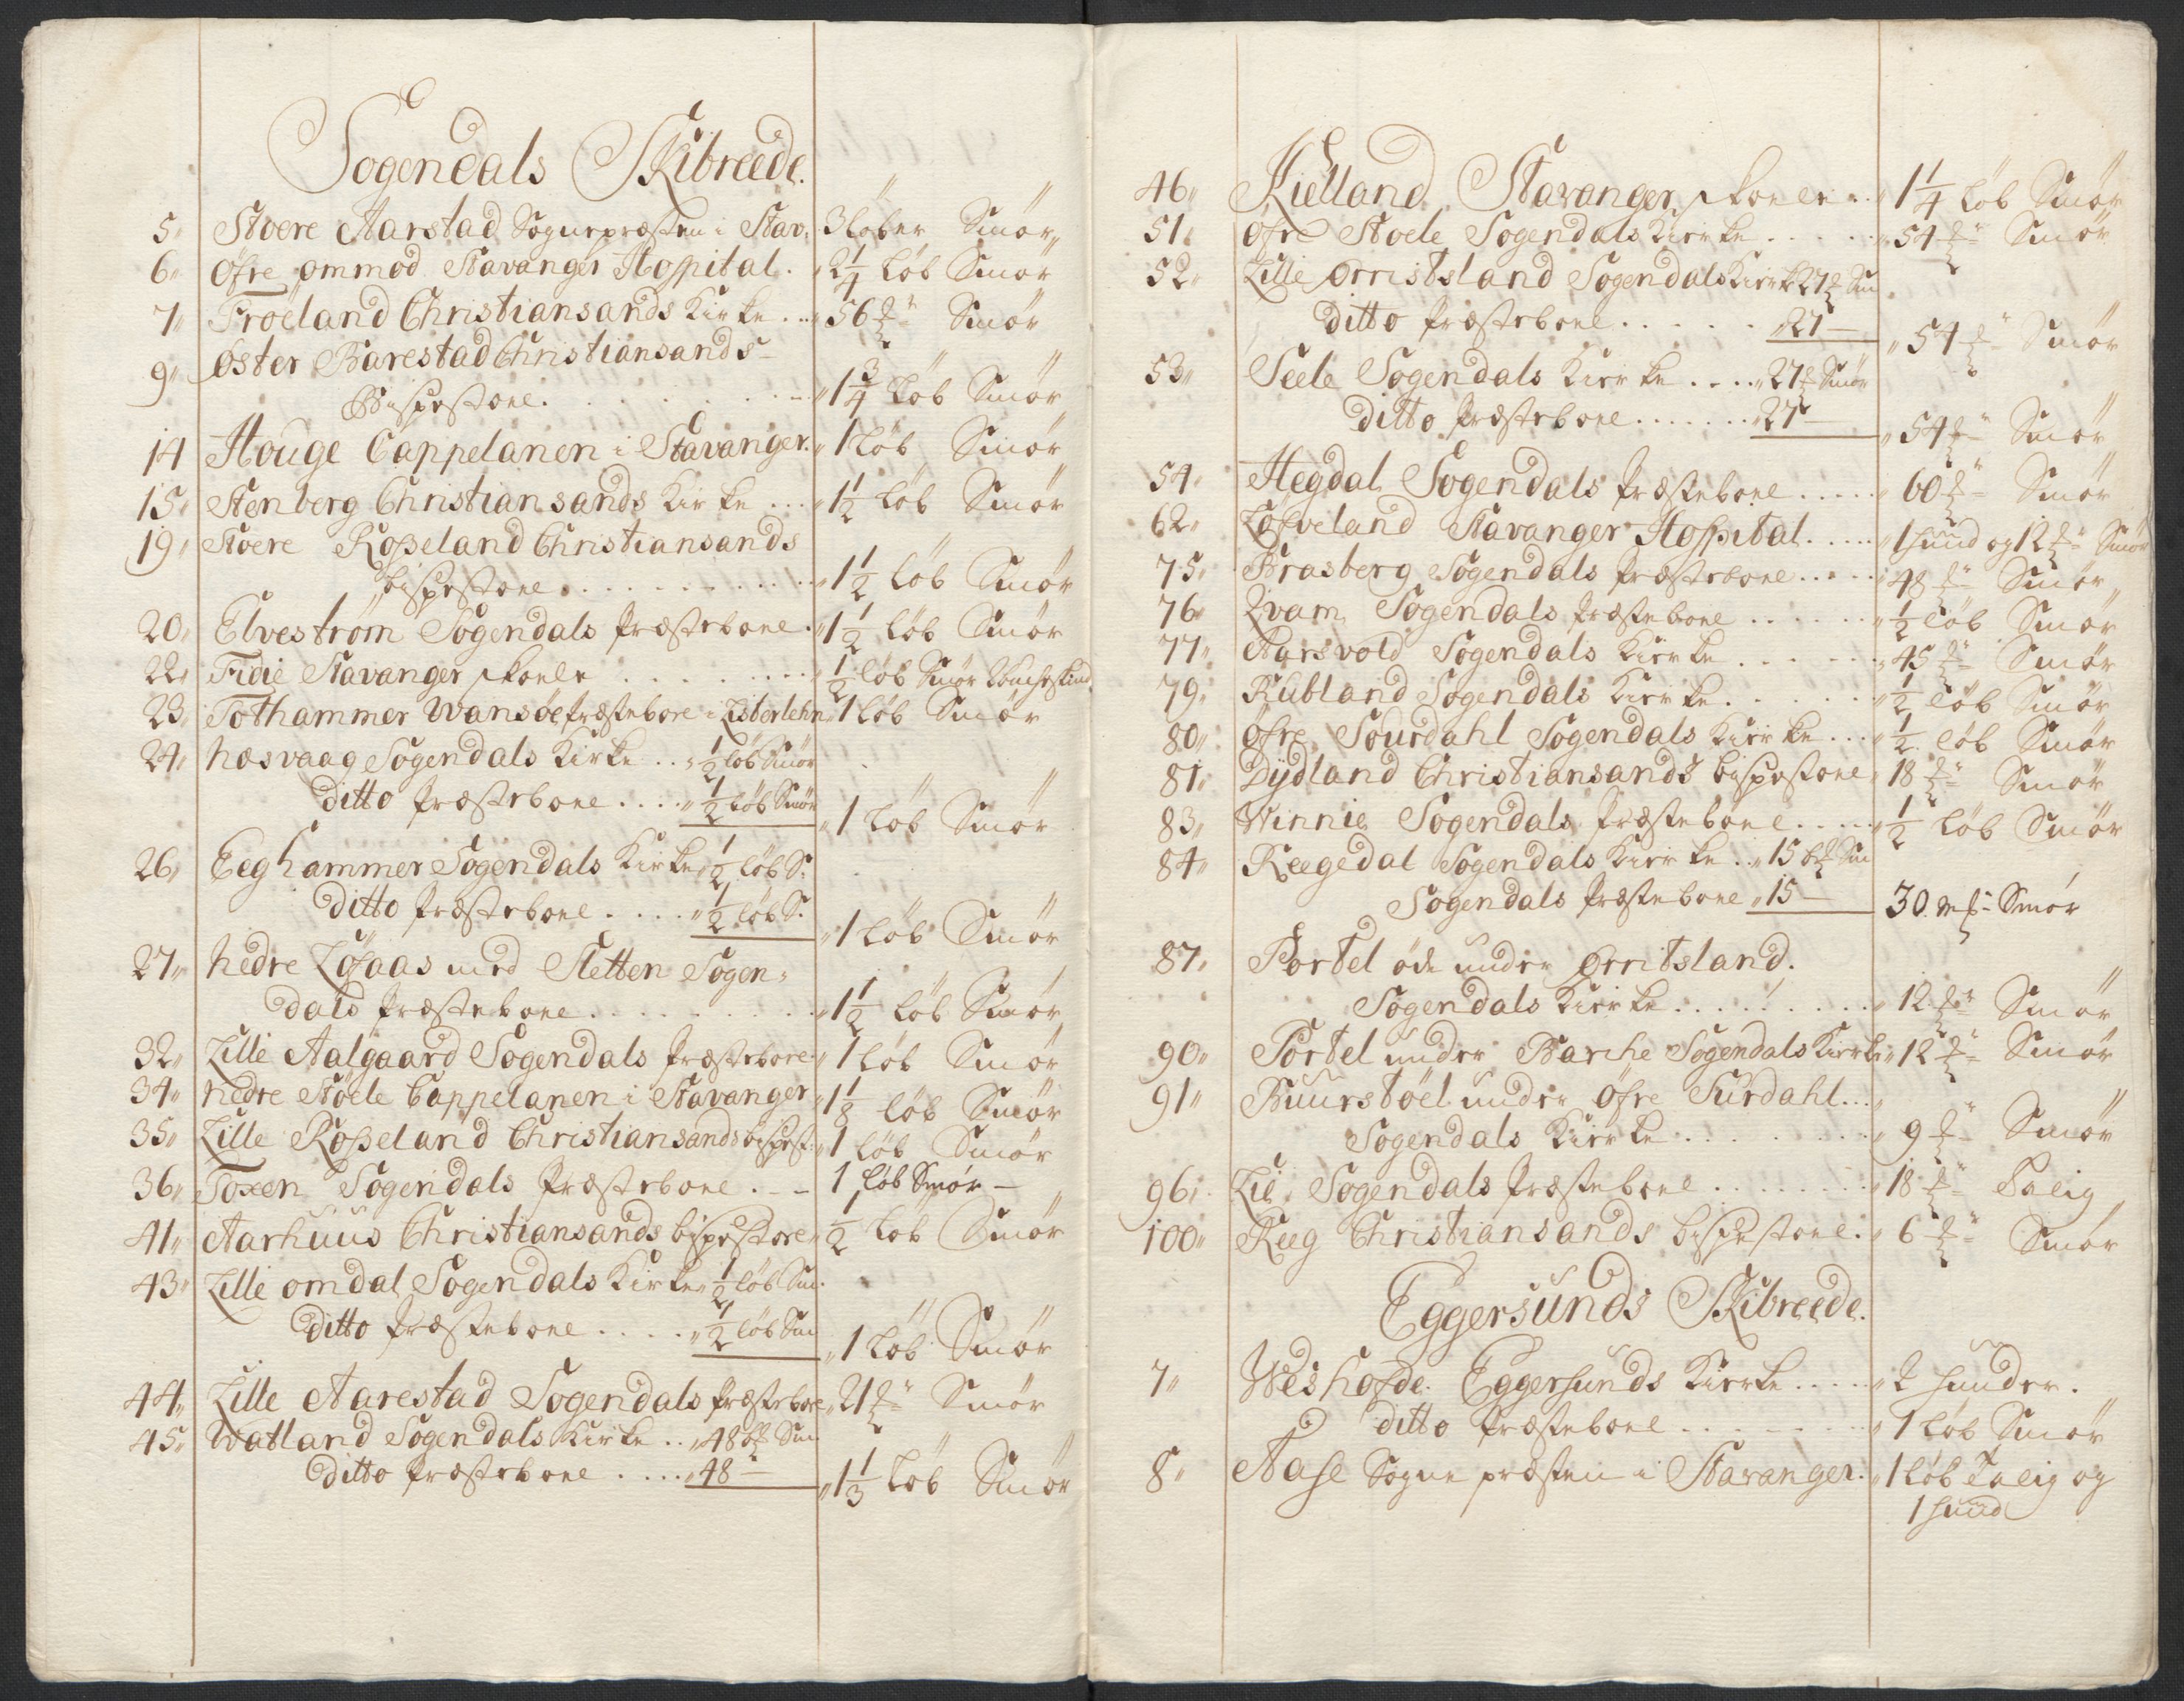 Sogendals Skibreede.
5" Stoere Aarstad Sognepræsten i Stav: 3 løber Smør
6" øfre ommod Stavanger Hospital. 2 1/4 Løb Smør
7" Frøeland Christiansands Kirke ... 56 ℔ Smør
9" Øster Barestad Christiansands
Bispestoel. 1 3/4 Løb Smør
14 Houge Cappelanen i Stavanger. 1 Løb Smør
15" Stenberg Christiansands Kirke ... 1 1/2 Løb Smør
19" Stoere Roßeland Christiansands
bispestoel 1 1/2 Løb Smør
20" Elvestrøm Sogendals Præsteboel. 1 1/2 Løb Smør
22" Fidie Stavanger skoele 1/2 løb Smør
23" Tothammer Wansøe Præsteboel i Listerlehn 1 Løb Smør
24" hæsvaag Sogendals Kirke .. 1/2 løb Smør
ditto Præsteboel .... 1/2 Løb Smør 1 Løb Smør
26" Eeghammer Sogendals Kirke 1/2 Løb S:
ditto Præsteboel .... 1/2 Løb S: 1 Løb Smør
27" Nedre Løfaas med Sletten Sogen-
dals Præsteboel 1 1/2 Løb Smør
32" Lille Aalgaard Sogendals Præsteboel 1 Løb Smør
34" Nedre Støele Cappelanen i Stavanger 1 1/8 Løb Smør
35" Lille Roßeland Christiansands bispest: 1 Løb Smør
36" Foxen Sogendals Præsteboel .. 1 Løb Smør
41" Aarhuus Christiansands bispestoel 1/2 Løb Smør
43" Lille omdal Sogendals Kirke 1/2 Løb Sm.
ditto Præsteboel .... 1/2 løb Sm 1 Løb Smør
44" Lille Aarestad Sogendals Præsteboel 21 ℔ Smør
45" Watland Sogendals Kirke .. 48 ℔ Sm
ditto Præsteboel .... 48 1 1/3 Løb Smør
46" Kielland Stavanger skoele .. 1 1/4 Løb Smør
51" øfre Stoele Sogendals Kierke 54 ℔ Smør
52" Lille Orristsland Sogendals Kierke 27 ℔ Sm
ditto Præsteboel 27 54 ℔ Smør
53" Seele Sogendals Kierke .... 27 ℔ Smør
ditto Præsteboel 27 54 ℔ Smør
54" Hegdal Sogendals Præsteboel ..... 60 ℔ Smør
62" Løfveland Stavanger Hospital ..... 1 huud og 12 ℔ Smør
75" Brasberg Sogendals Præsteboel ..... 48 ℔ Smør
76" Qvam Sogendals Præsteboel 1/2 Løb Smør
77" Aarsvold Sogendals Kierke 45 ℔ Smør
79" Rubland Sogendals Kierke. 1/2 Løb Smør
80" Øfre Sourdahl Sogendals Kierke ... 1/2 Løb Smør
81" Dydland Christiansands bispestoel 18 ℔ Smør
83" Winnie Sogendals Præsteboel ..... 1/2 Løb Smør
84" Reegedal Sogendals Kierke .. 15 ℔ Sm
Sogendals Præsteboel 15 30 m℔ Smør
87" Portel öde under Orritsland.
Sogendals Kierke 12 ℔ Smør
90" Portel under Barche Sogendals Kierke 12 ℔ Smør
91" Buurstøel under Øfre Surdahl...
Sogendals Kierke 9 ℔ Smør
96" Lie Sogendals Præsteboel 18 ℔ Talig
100" Reeg Christiansands bispestoel. 6 ℔ Smør
Eggersunds Skibreede.
7" Weshofde Eggersunds Kierke .... 2 huuder.
ditto Præsteboel 1 Løb Smør
8" Aase Sogne præsten i Stavanger. 1 Løb Talig og
1 huud